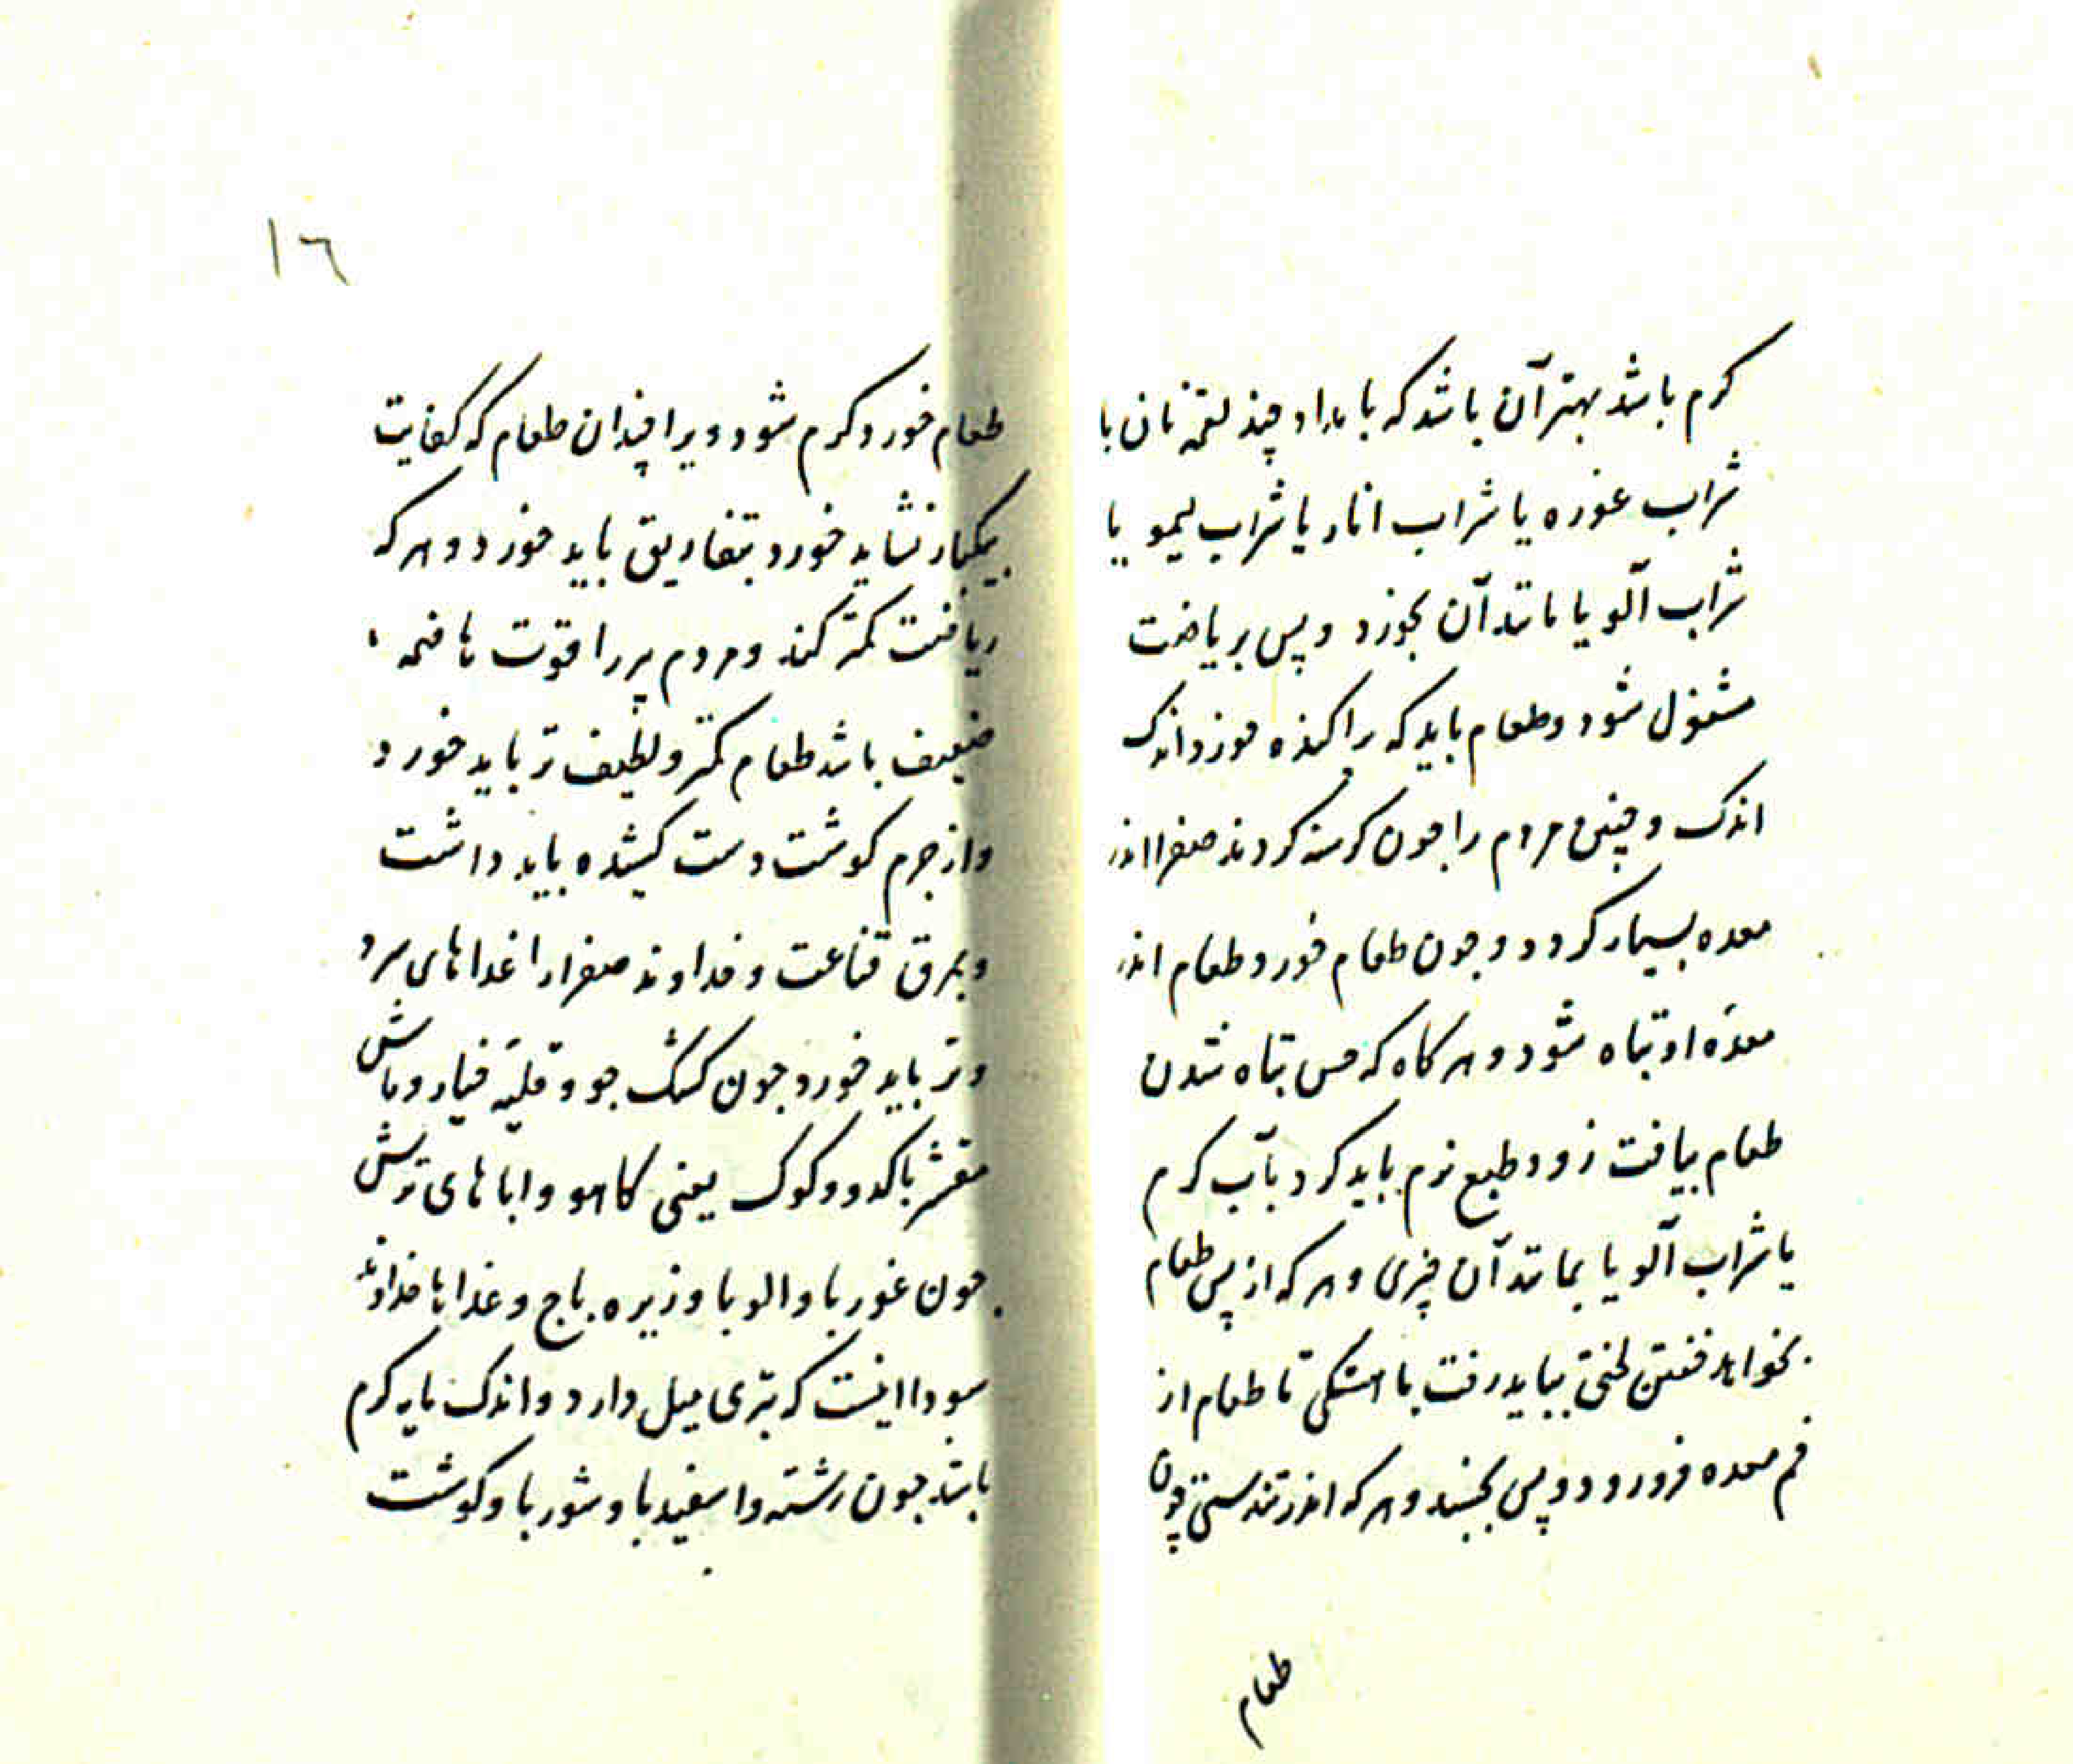 کرم باشد بهتر آن باشد که بامداد چند لقمه نان با
شراب غوره یا شراب انار یا شراب لیمو یا
شراب آلو یا مانند آن بخورد و پس بریاضت
مشغول شود و طعام باید که پراکنده خورد اندک
اندک و چنین مردم را چون کرسنه کردند صفرا اندر
معده بسیار کردد و چون طعام خورد طعام اندر
معدهٔ او تباه شود و هر کاه که حس تباه شدن
طعام بیافت زود طبع نرم باید کرد بآب کرم
یا شراب آلو یا بمانند آن چیزی و هر که از پس طعام
بخواهد خفتن لختی بباید رفت باهستکی تا طعام از
فم معده فرو رود و پس بخسبد و هر که اندر تندرستی چون
طعام
١٦
طعام خورد کرم شود ویرا چندان طعام که کفایت
بیکبار نشاید خورد بتفاریق باید خورد و هر که
ریاضت کمتر کند و مردم پیر را قوت هاضمه
ضعیف باشد طعام کمتر و لطیف تر باید خورد
و از جرم کوشت دست کشیده باید داشت
وبمرق قناعت و خداوند صفرا را غذاهای سرد
و تر باید خورد چون کشک جو و قلیهٔ خیار و ماش
مقشر با کدو و کوک یعنی کاهو و اباهای ترش
چون غوربا و الوبا و زیره باج و غذاها خداوند
سودا اینست که بتری میل دارد و اندک مایه کرم
باشد چون رشته و اسفیدبا و شوربا و کوشت